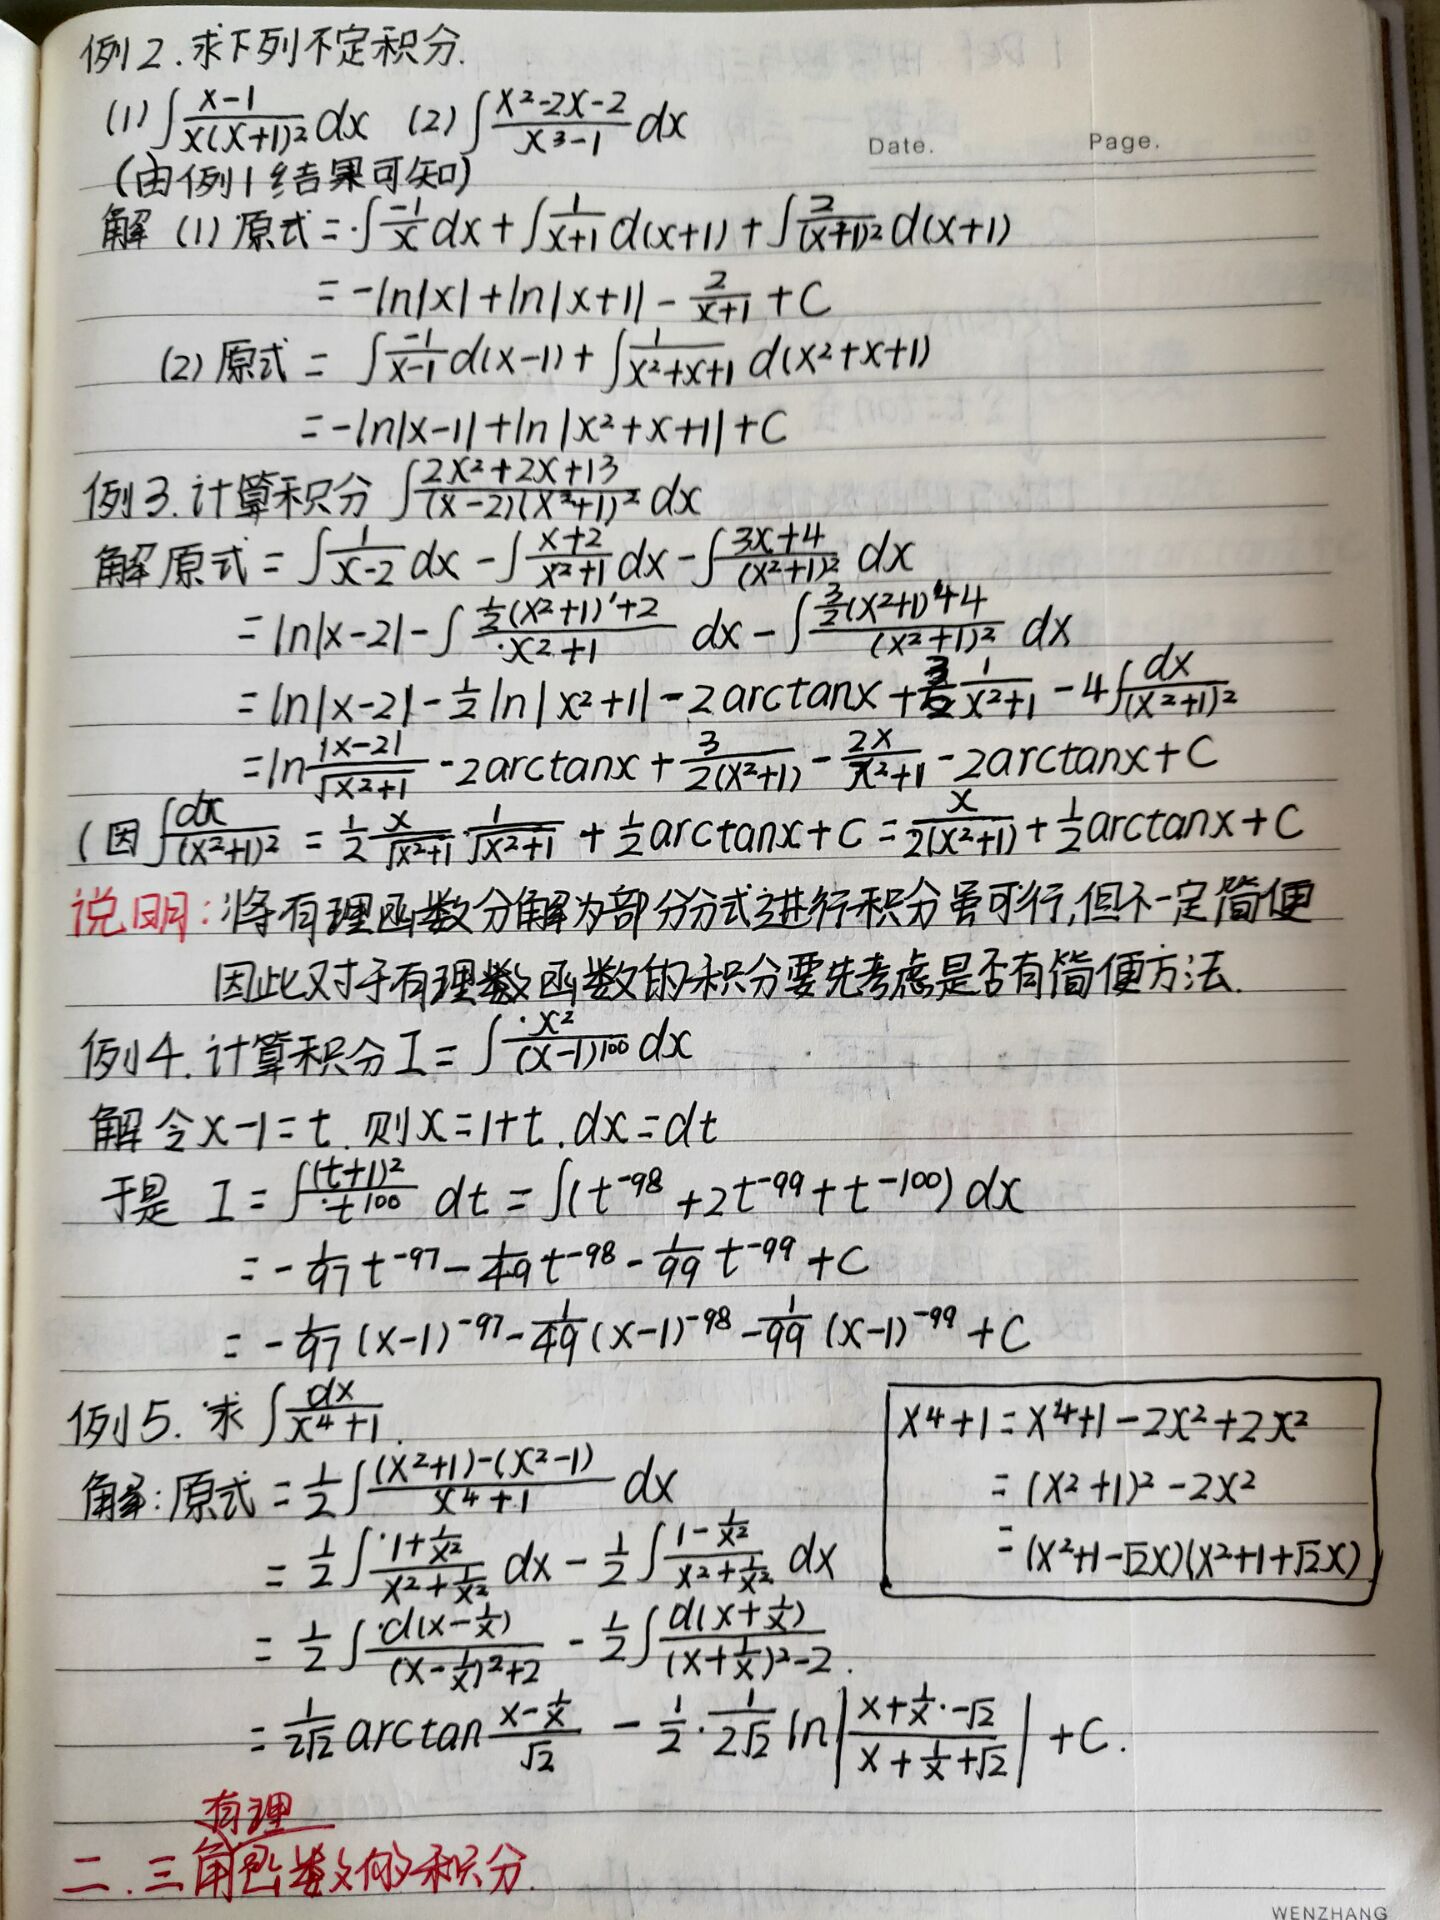 例2.求下列不定积分.
(1)∫\frac{x-1}{x(x+1)²}dx (2)∫\frac{x²-2x-2}{x³-1}dx
Date. Page.
(由例1结果可知)
解 (1)原式=∫\frac{-1}{x}dx+∫\frac{1}{x+1}d(x+1)+∫\frac{2}{(x+1)²}d(x+1)
=-ln|x|+ln|x+1|-\frac{2}{x+1}+C
(2)原式=∫\frac{-1}{x-1}d(x-1)+∫\frac{1}{x²+x+1}d(x²+x+1)
=-ln|x-1|+ln|x²+x+1|+C
例3.计算积分∫\frac{2x²+2x+13}{(x-2)(x²+1)²}dx
解原式=∫\frac{1}{x-2}dx-∫\frac{x+2}{x²+1}dx-∫\frac{3x+4}{(x²+1)²}dx
=ln|x-2|-∫\frac{\frac{1}{2}(x²+1)'+2}{x²+1}dx-∫\frac{\frac{3}{2}(x²+1)'+4}{(x²+1)²}dx
=ln|x-2|-\frac{1}{2}ln|x²+1|-2arctanx+\frac{3}{2}\frac{1}{x²+1}-4∫\frac{dx}{(x²+1)²}
=ln\frac{|x-2|}{\sqrt{x²+1}}-2arctanx+\frac{3}{2(x²+1)}-\frac{2x}{x²+1}-2arctanx+C
(因∫\frac{dx}{(x²+1)²}=\frac{1}{2}\frac{x}{\sqrt{x²+1}}·\frac{1}{\sqrt{x²+1}}+\frac{1}{2}arctanx+C=\frac{x}{2(x²+1)}+\frac{1}{2}arctanx+C
说明:将有理函数分解为部分分式进行积分虽可行,但不一定简便
因此对于有理数函数的积分要先考虑是否有简便方法.
例4.计算积分I=∫\frac{x²}{(x-1)^{100}}dx
解 令x-1=t.则x=1+t.dx=dt
于是 I=∫\frac{(t+1)²}{t^{100}}dt=∫(t^{-98}+2t^{-99}+t^{-100})dx
=-\frac{1}{97}t^{-97}-\frac{1}{49}t^{-98}-\frac{1}{99}t^{-99}+C
=-\frac{1}{97}(x-1)^{-97}-\frac{1}{49}(x-1)^{-98}-\frac{1}{99}(x-1)^{-99}+C
例5.求∫\frac{dx}{x⁴+1}.
解:原式=\frac{1}{2}∫\frac{(x²+1)-(x²-1)}{x⁴+1}dx
=\frac{1}{2}∫\frac{1+\frac{1}{x²}}{x²+\frac{1}{x²}}dx-\frac{1}{2}∫\frac{1-\frac{1}{x²}}{x²+\frac{1}{x²}}dx
=\frac{1}{2}∫\frac{d(x-\frac{1}{x})}{(x-\frac{1}{x})²+2}-\frac{1}{2}∫\frac{d(x+\frac{1}{x})}{(x+\frac{1}{x})²-2}.
=\frac{1}{2\sqrt{2}}arctan\frac{x-\frac{1}{x}}{\sqrt{2}}-\frac{1}{2}·\frac{1}{2\sqrt{2}}ln|\frac{x+\frac{1}{x}-\sqrt{2}}{x+\frac{1}{x}+\sqrt{2}}|+C.
x⁴+1=x⁴+1-2x²+2x²
=(x²+1)²-2x²
=(x²+1-\sqrt{2}x)(x²+1+\sqrt{2}x)
有理
二.三角函数的积分.
WENZHANG